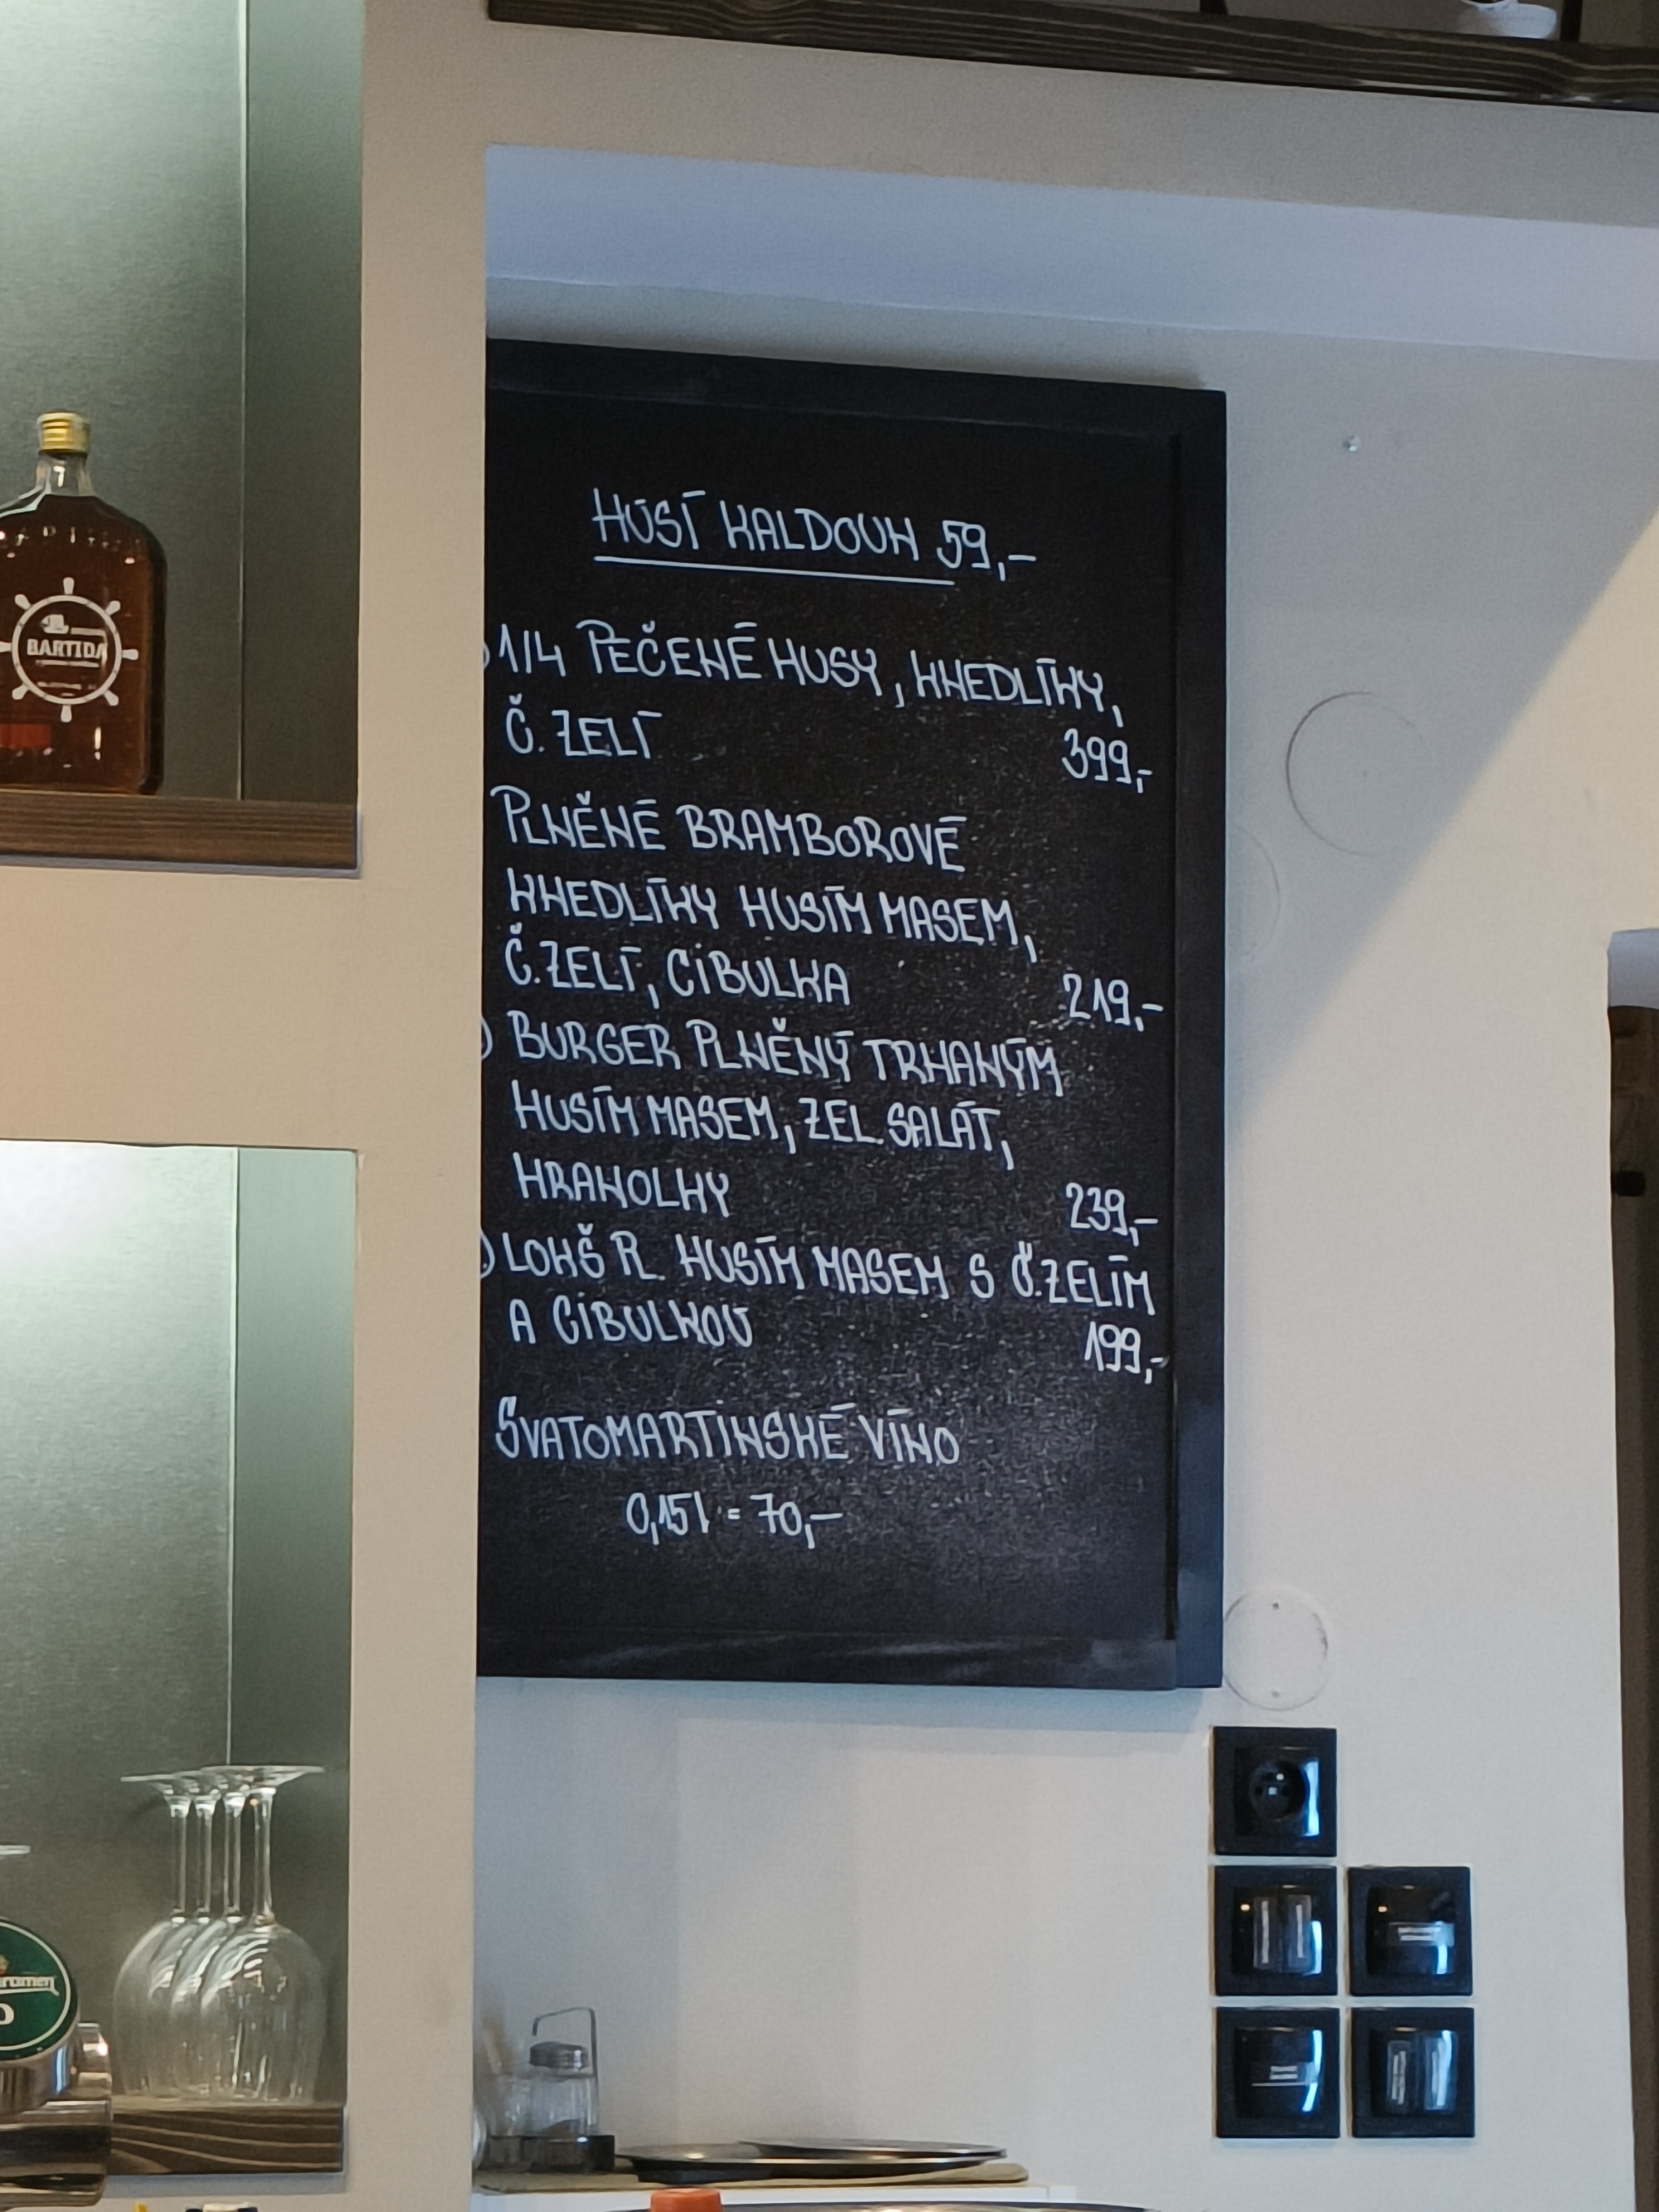 HUSÍ KALDOUN 59,-
1/4 PEČENÉ HUSY, KNEDLÍKY,
Č. ZELÍ 399,-
PLNĚNÉ BRAMBOROVÉ
KNEDLÍKY HUSÍM MASEM,
Č. ZELÍ, CIBULKA 219,-
) BURGER PLNĚNÝ TRHANÝM
HUSÍM MASEM, ZEL. SALÁT,
HRANOLKY 239,-
) LOKŠ PL. HUSÍM MASEM S Č. ZELÍM
A CIBULKOU 199,-
SVATOMARTINSKÉ VÍNO
0,15l = 70,-
BARTIDA